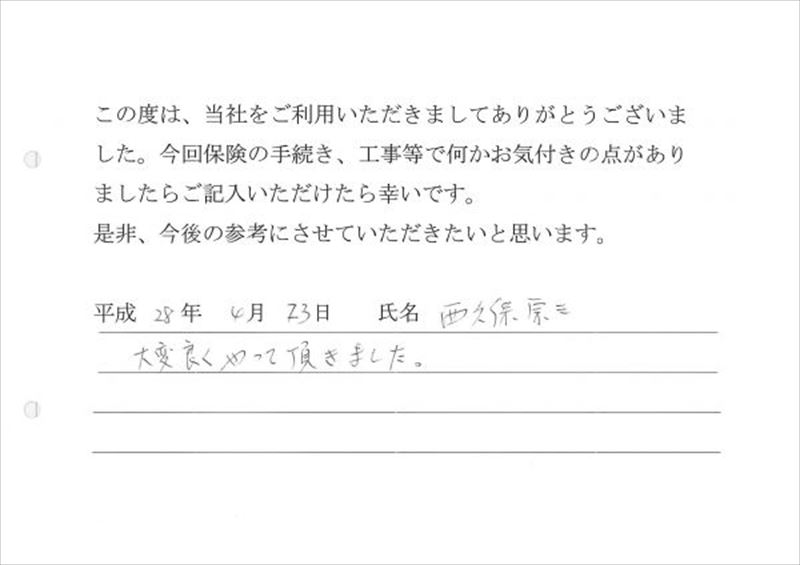 この度は、当社をご利用いただきましてありがとうございま
した。今回保険の手続き、工事等で何かお気付きの点があり
ましたらご記入いただけたら幸いです。
是非、今後の参考にさせていただきたいと思います。
平成 28年 4月 23日 氏名 西久保宗三
大変良くやって頂きました。